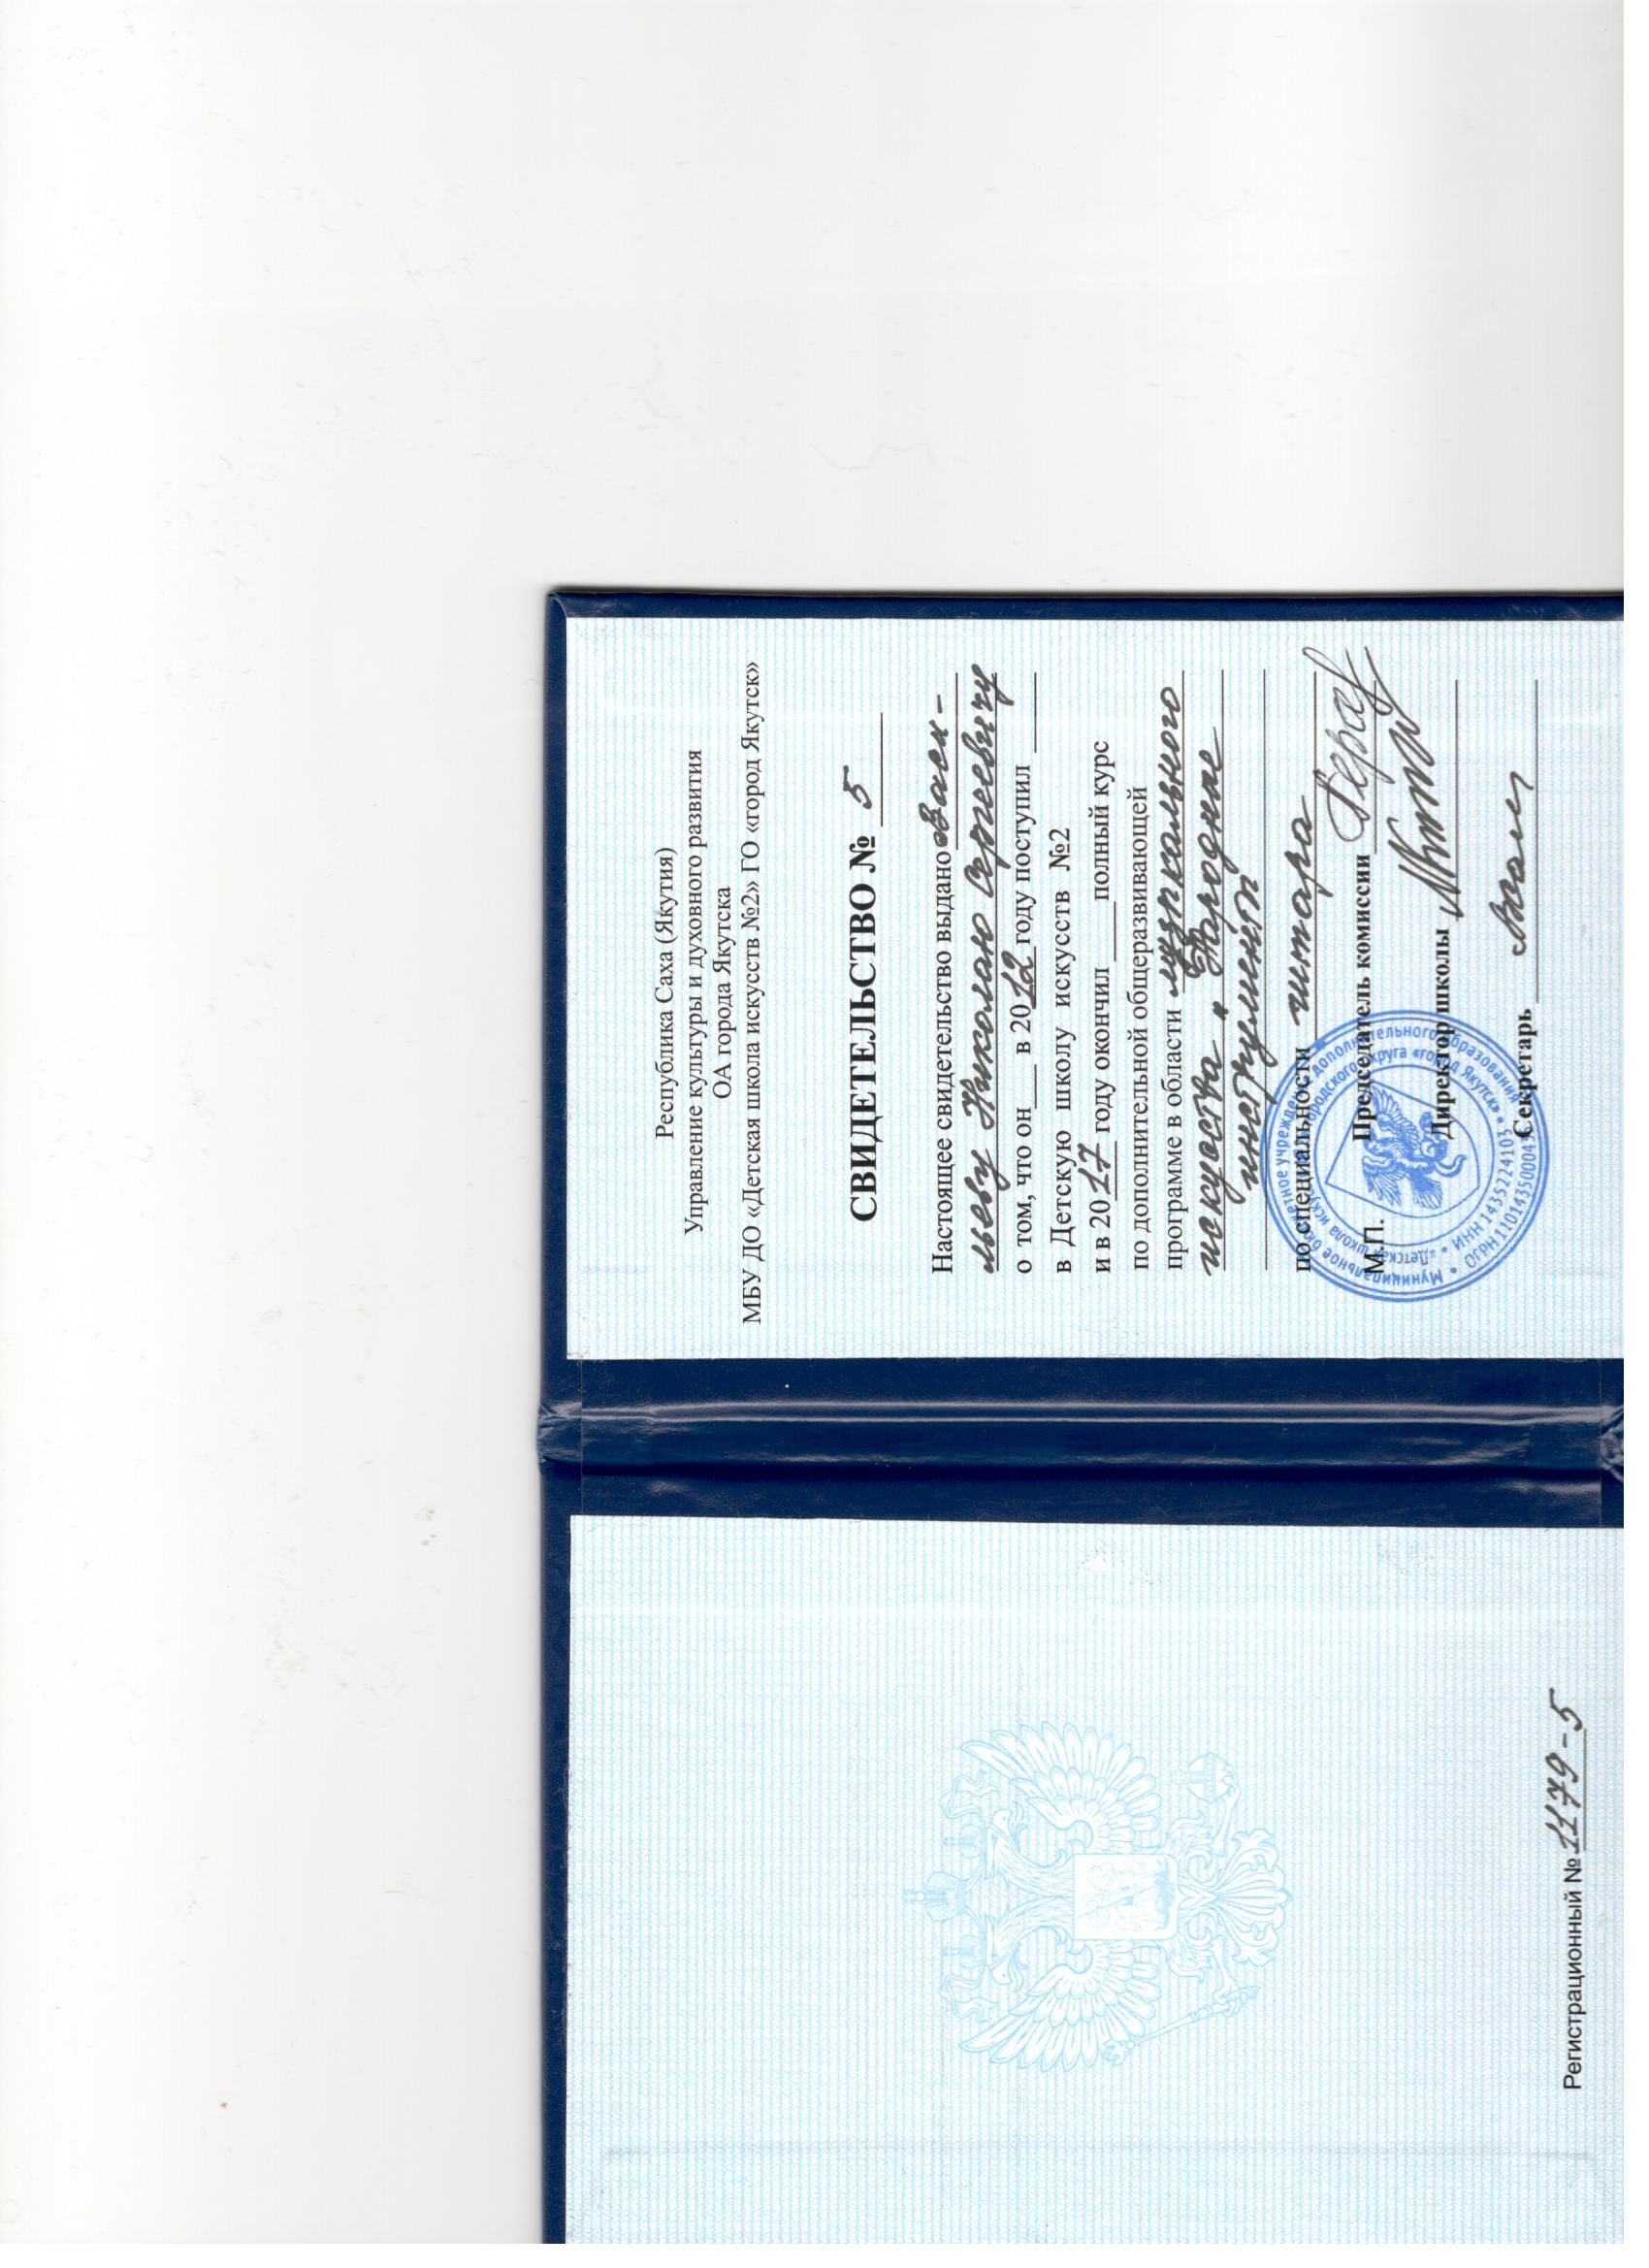 Регистрационный № 1179-5
Республика Саха (Якутия)
Управление культуры и духовного развития
ОА города Якутска
МБУ ДО «Детская школа искусств №2» ГО «город Якутск»
СВИДЕТЕЛЬСТВО № 5
Настоящее свидетельство выдано Васи-
льеву Николаю Сергеевичу
о том, что он___ в 2012 году поступил
в Детскую школу искусств №2
и в 2017 году окончил ___ полный курс
по дополнительной общеразвивающей
программе в области музыкального
искусства "Народные
инструменты
по специальности гитара
М.П. Председатель комиссии
Директор школы
Секретарь
Муниципальное бюджетное учреждение дополнительного образования
«Детская школа искусств городского округа «город Якутск»
ИНН 1435224103